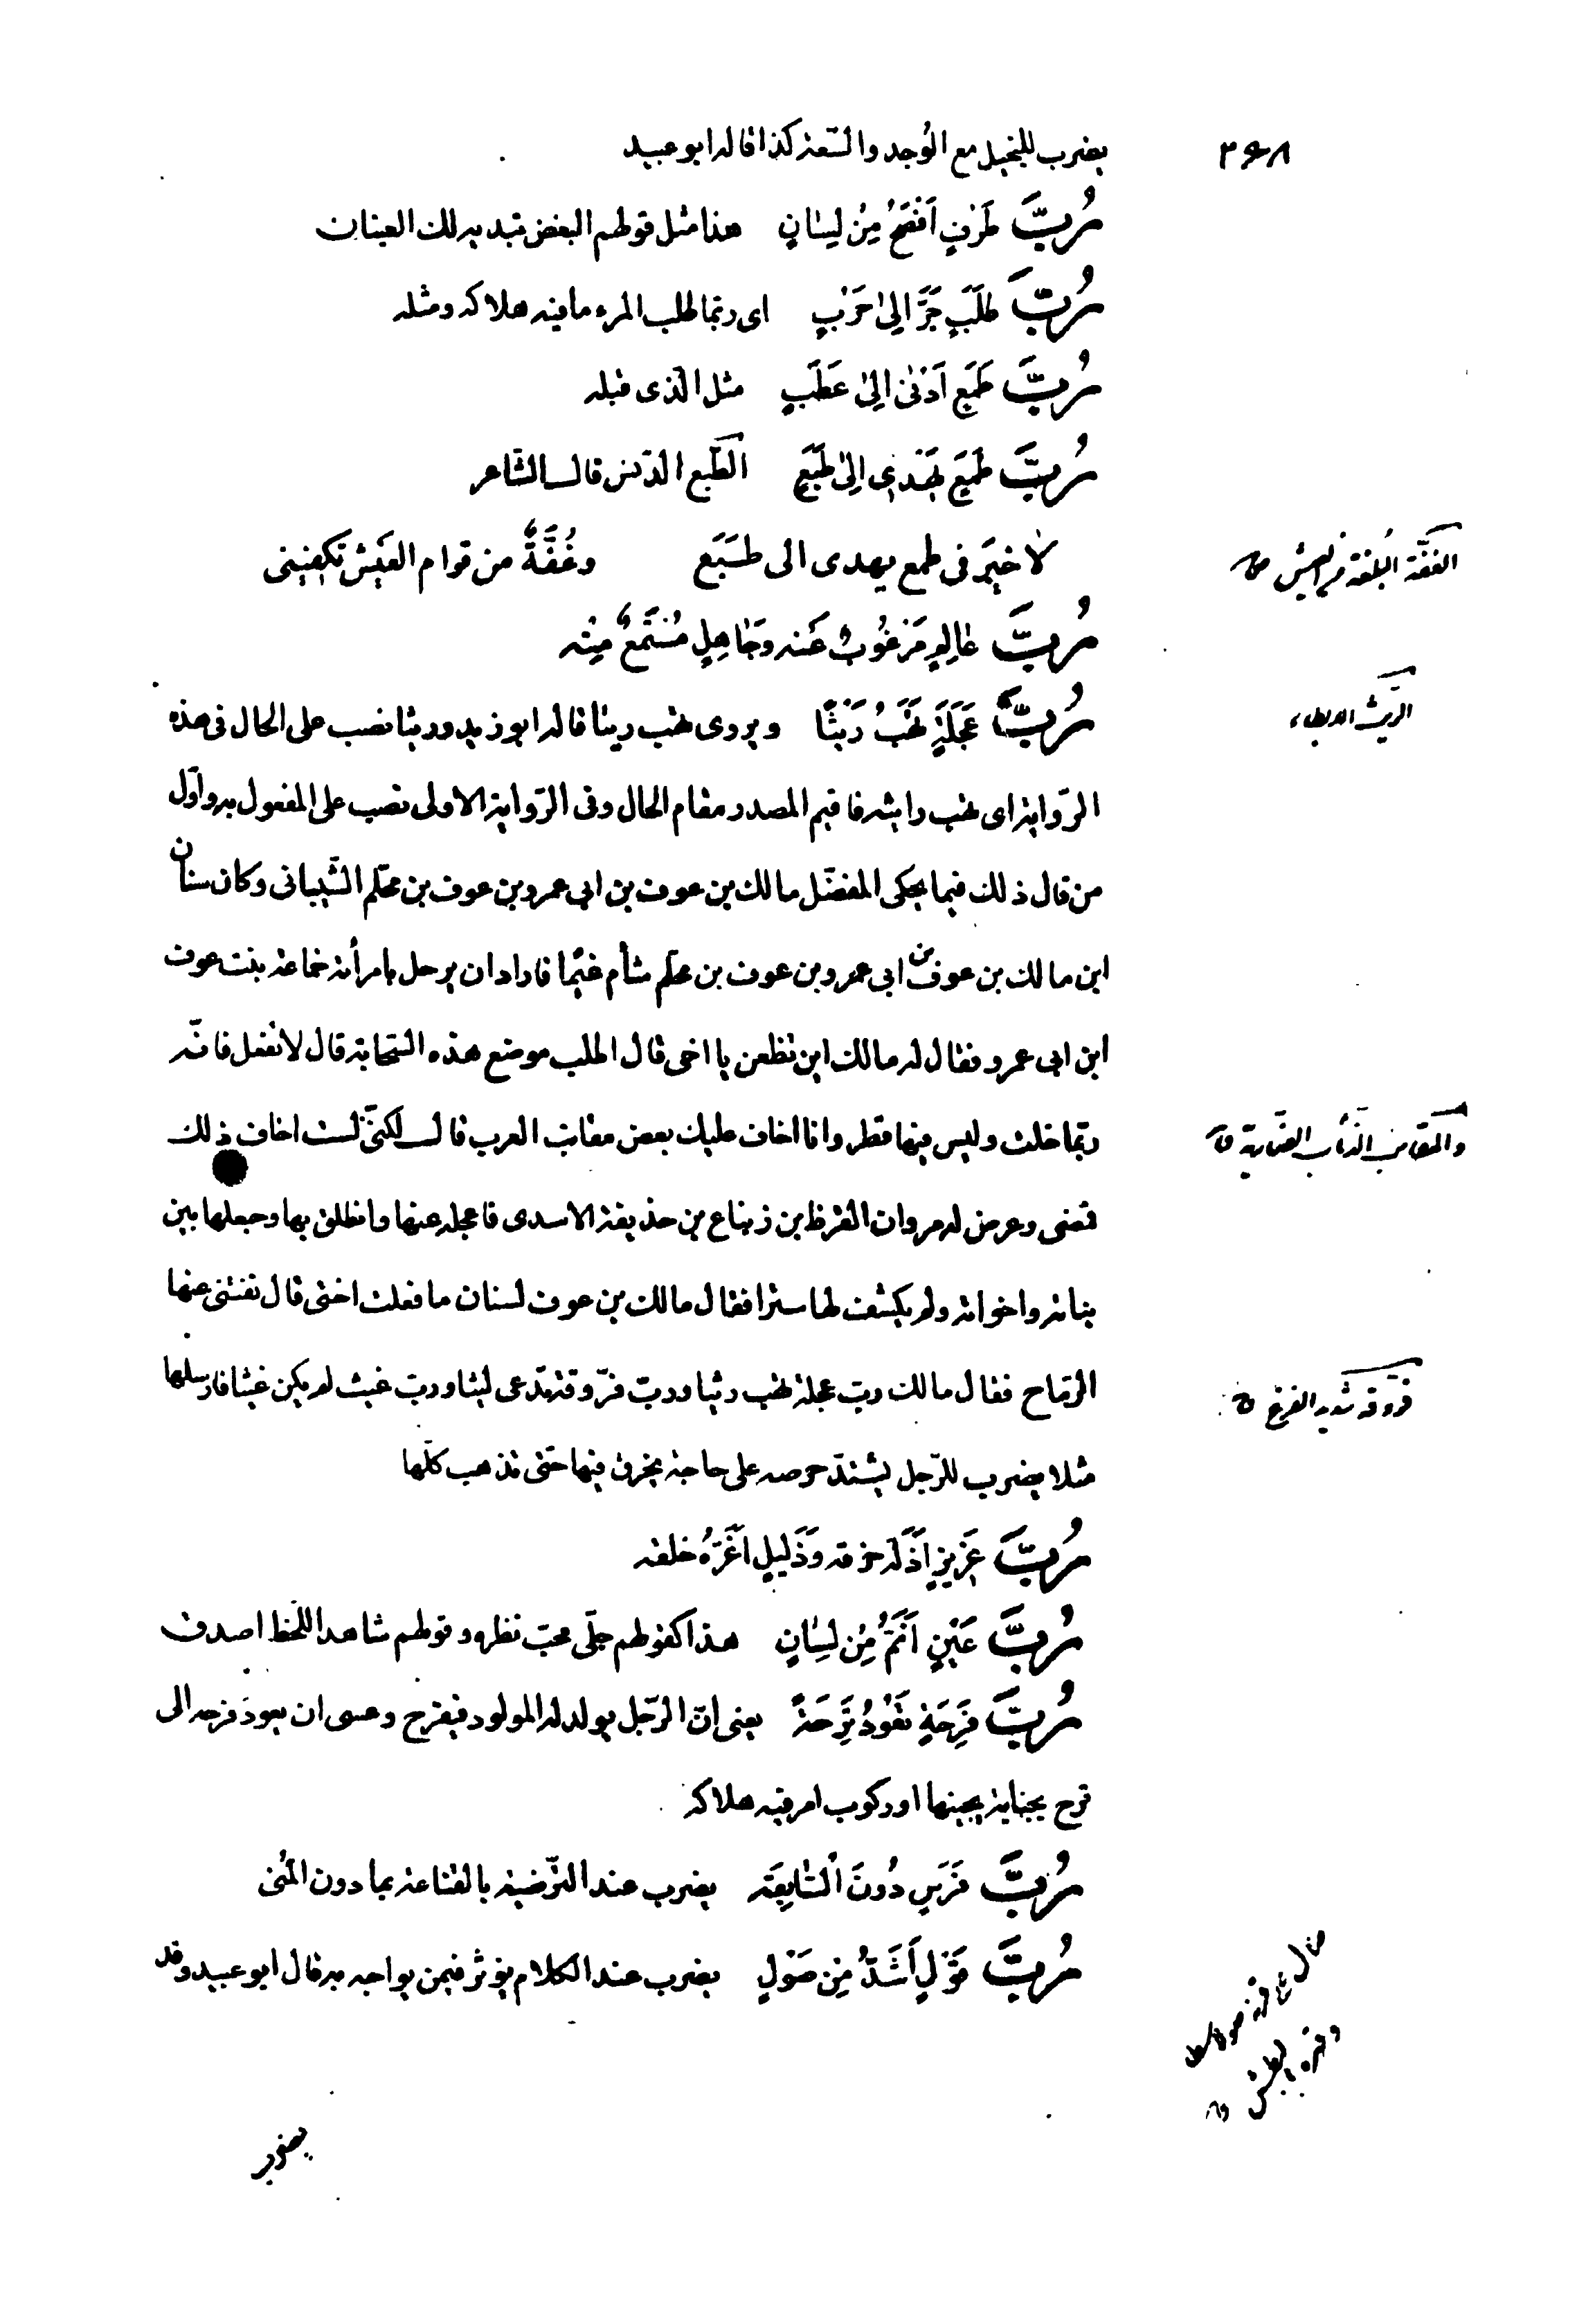 ٢٤٨
يضرب للبخيل مع الوجد والسّعة كذا قاله ابو عبيد
رُبَّ طَرْفٍ اَفْصَحُ مِنْ لِسَانٍ هذا مثل قولهم البغض تبديه لك العينان
رُبَّ طَلَبٍ جَرَّ اِلىٰ حَرْبٍ اى ربّما طلب المرء ما فيه هلاكه ومثله
رُبَّ طَمَعٍ اَدْنىٰ اِلىٰ عَطَبٍ مثل الّذى قبله
رُبَّ طَمَعٍ يَهْدى اِلىٰ طَبَعٍ الطّبع الدّنس قال الشّاعر
لا خيَر فى طمع يهدى الى طَبَع وغُفَّةٌ من قوام العَيش تكفينى
الغفّة البلغة من العيش
رُبَّ عٰالِمٍ مَرْغُوبٌ عَنه وَجَاهِلٍ مُسْتَمَعٌ مِنْه
رُبَّ عَجَلَةٍ تَهَبُ رَيْثًا ويروى تهب ريثا قاله ابو زيد وريثا نصب على الحال فى هذه
الرّيث الابطاء
الرّواية اى تهب رايثه فاقيم المصدر مقام الحال وفى الرّواية الاولى نصب على المفعول به واوّل
من قال ذلك فيما يحكى المفضّل مالك بن عوف بن ابى عمرو بن عوف بن محلّم الشّيبانى وكان سنان
ابن مالك بن عوف بن ابى عمرو بن عوف بن محلّم شأم غيمًا فاراد ان يرحل بامرأته خماعة بنت عوف
ابن ابى عمرو فقال له مالك اين تظعن يا اخى قال اطلب موضع هذه السّحابة قال لا تفعل فانّه
ربّما خلت وليس فيها قطر وانا اخاف عليك بعض مقانب العرب قال لكنّى لست اخاف ذلك
والمقانب الذئاب الضّارية
فمضى وعرض له مروان القرظ بن زنباع بن حذيفة الاسدى فاعجله عنها وانطلق بها وجعلها بين
بناته واخواته ولم يكشف لها سترا فقال مالك بن عوف لسنان ما فعلت اختى قال نفتنى عنها
الرّماح فقال مالك ربّ عجلة تهب ريثا وربّ فرّوقة يدّعى ليثا وربّ غيث لم يكن غيثا فارسلها
فرّوقة شديد الفزع
مثلا يضرب للرّجل يشتدّ حرصه على حاجة يخرق فيها حتّى تذهب كلّها
رُبَّ عَزِيزٍ اَذَلَّه خرقه وَذَليلٍ اَعَزَّهُ خلقه
رُبَّ عَيْنٍ اَنَمُّ مِنْ لِسٰانٍ هذا كقولهم جلّى محبّ نظره وقولهم شاهد اللّحظ اصدق
رُبَّ فَرحَةٍ تَعُودُ تَرْحَةً يعنى انّ الرّجل يولد له المولود فيفرح وعسى ان يعود فرحه الى
ترح بجناية يجنيها او ركوب امر فيه هلاكه
رُبَّ فَرَسٍ دُونَ السّٰابِقَه يضرب عند التّرضية بالقناعة بما دون المُنى
رُبَّ قَوْلٍ اَشَدُّ مِنْ صَوْلٍ يضرب عند الكلام يؤثر فيمن يواجه به قال ابو عبيد وقد
صال على قرنه